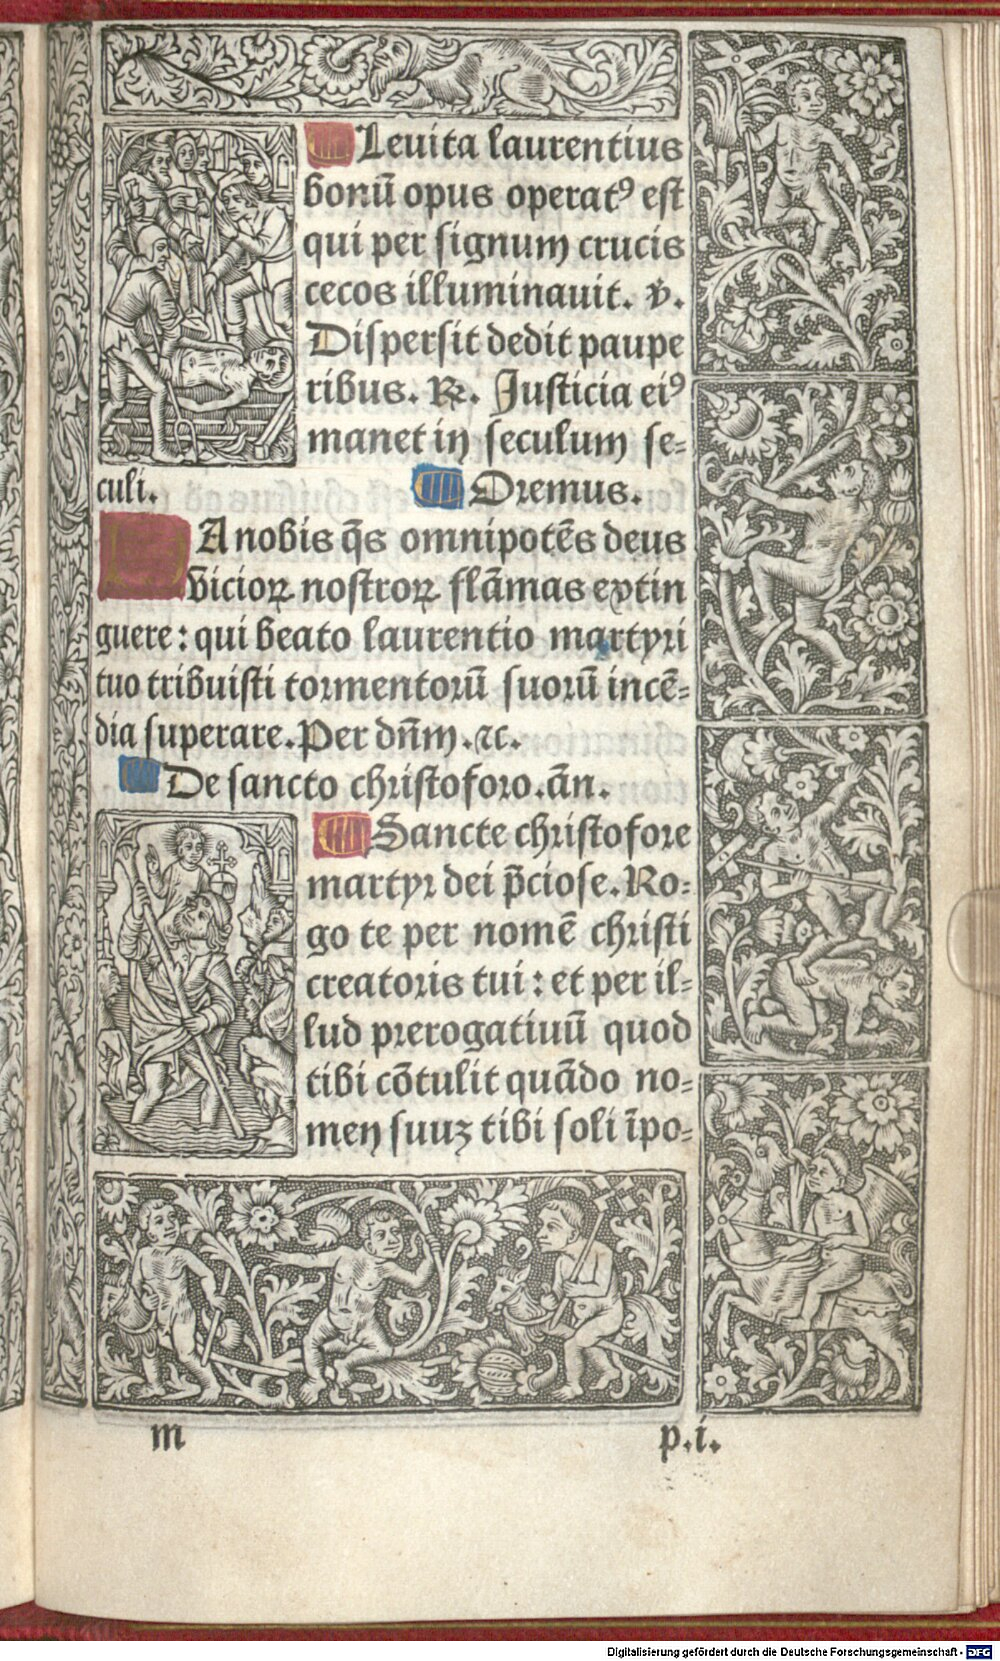 Leuita laurentius
bonū opus operatꝰ est
qui per signum crucis
cecos illuminauit. ℣.
Dispersit dedit paupe
ribus. ℟. Justicia eiꝰ
manet in seculum se-
culi. Oremus.
DA nobis q̄s omnipotēs deus
vicioꝝ nostroꝝ flāmas extin
guere: qui beato laurentio martyri
tuo tribuisti tormentorū suorū incē-
dia superare. Per dn̄m. ⁊c.
De sancto christoforo. an̄.
Sancte christofore
martyr dei p̄ciose. Ro-
go te per nomē christi
creatoris tui: et per il-
lud prerogatiuū quod
tibi cōtulit quādo no-
men suuꝫ tibi soli īpo-
m p.i.
Digitalisierung gefördert durch die Deutsche Forschungsgemeinschaft - DFG